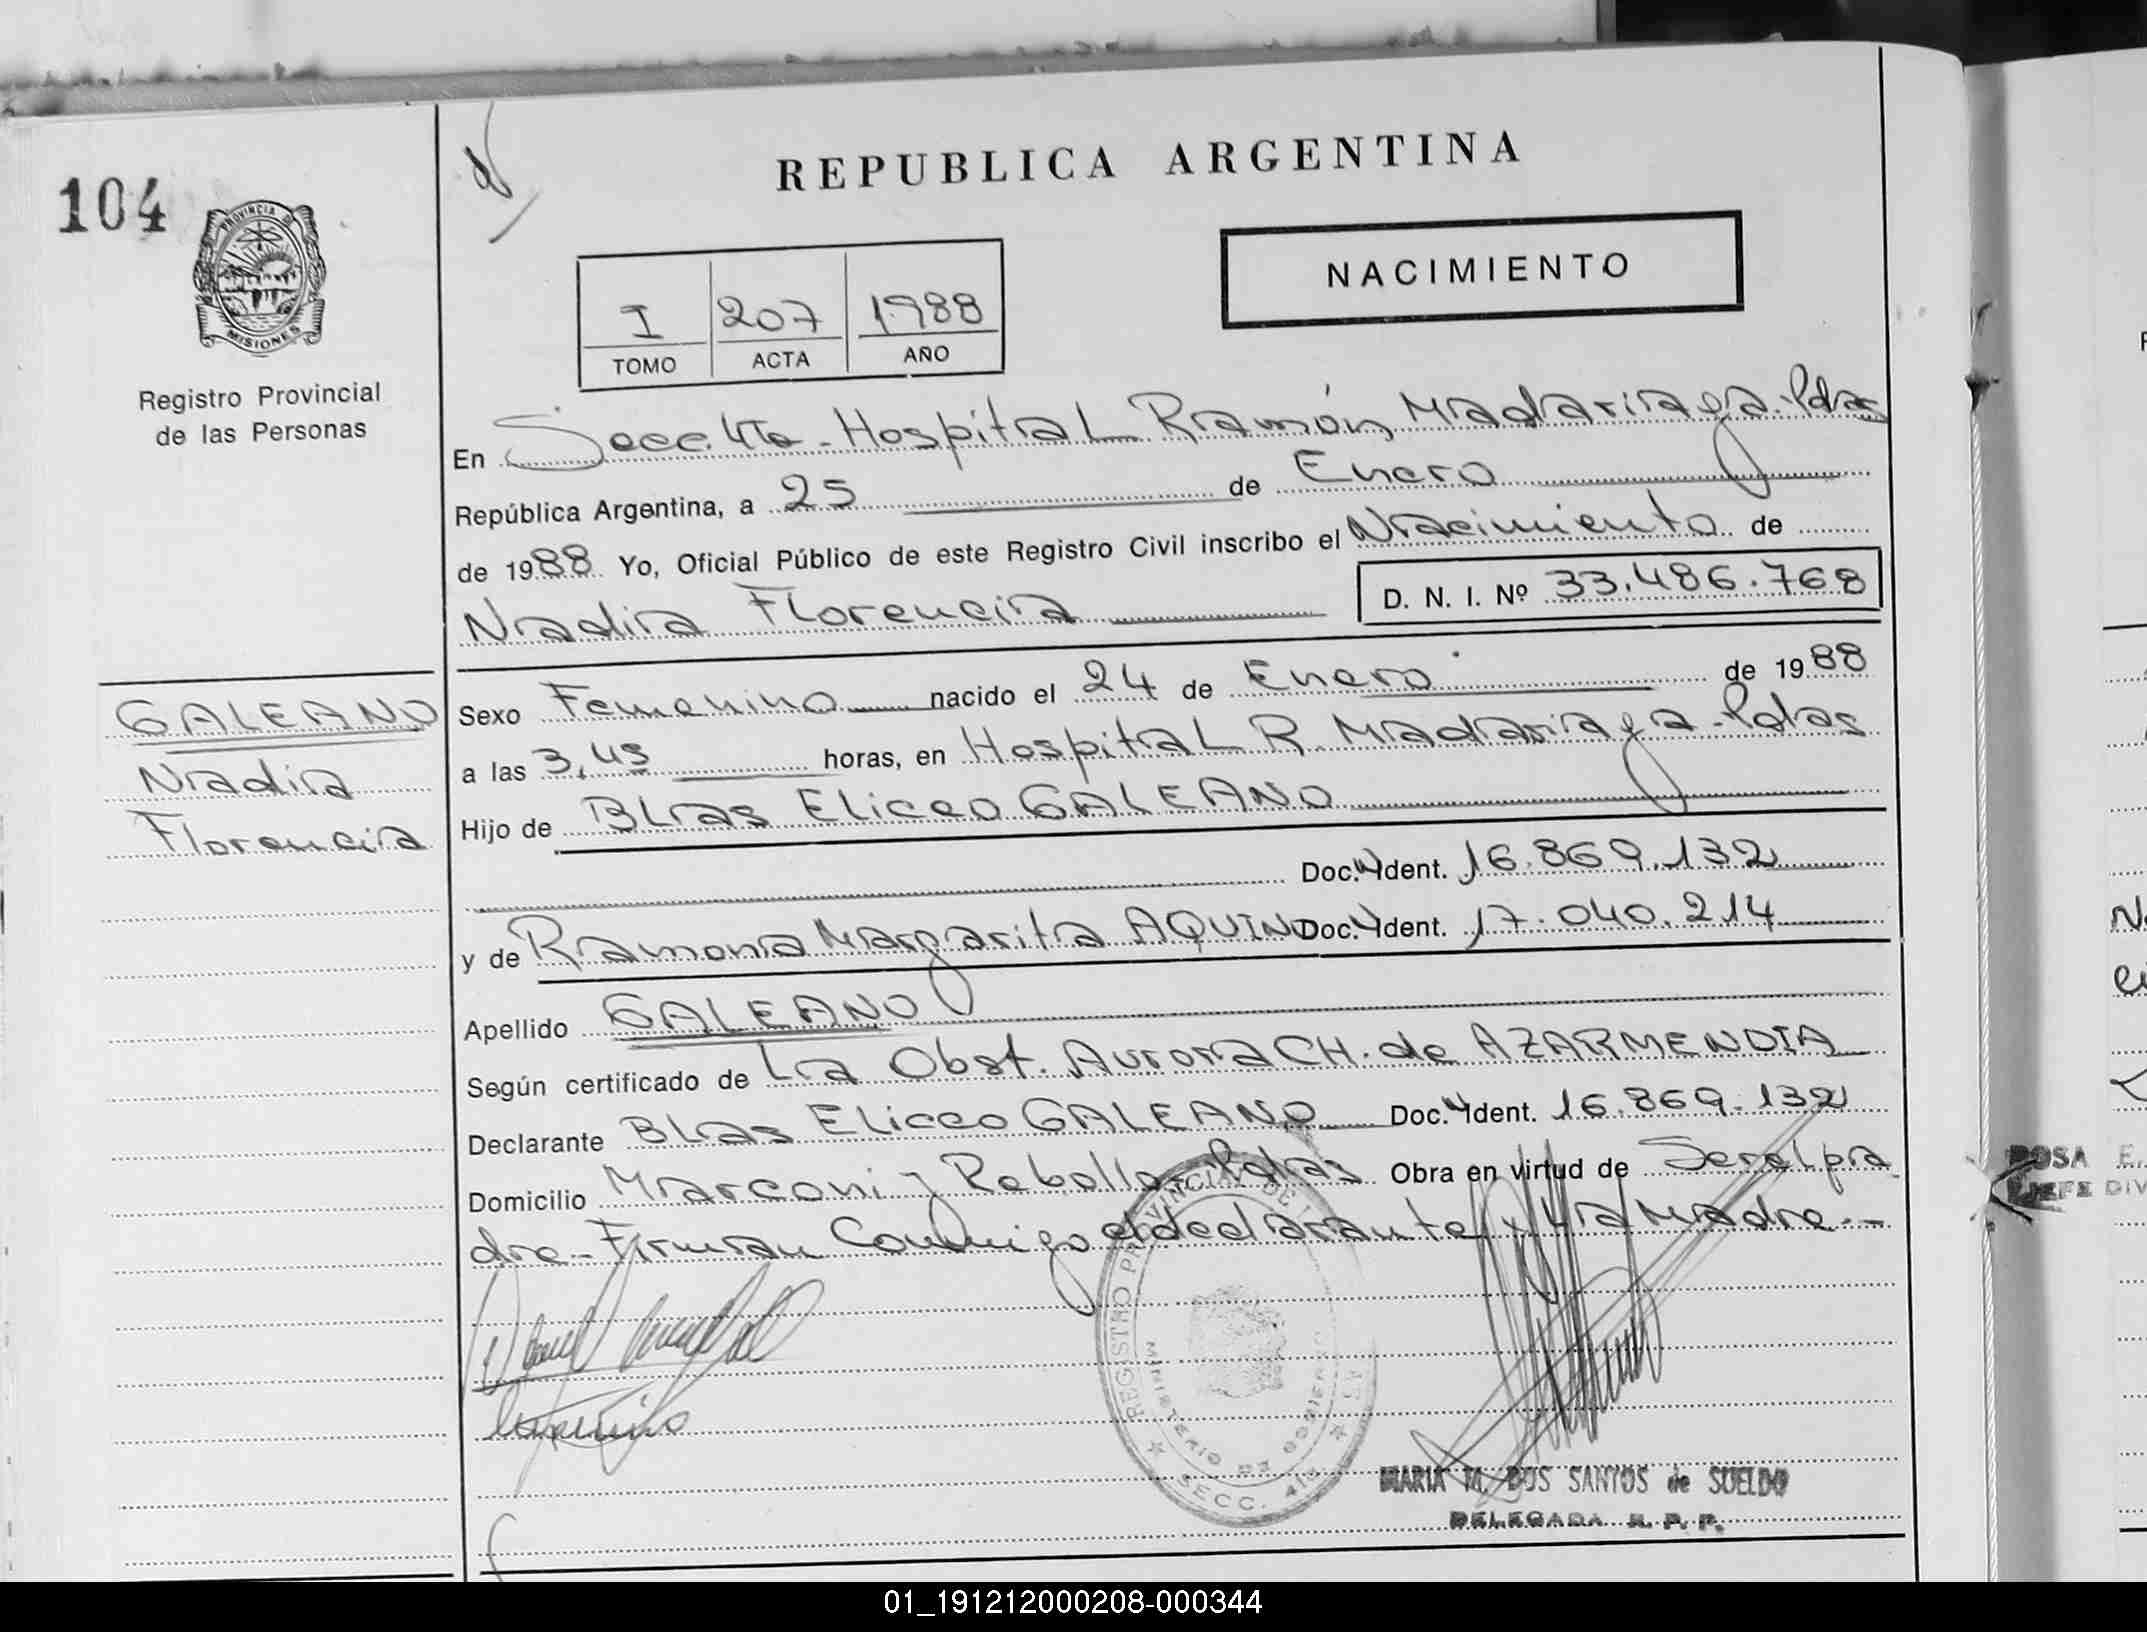 REPUBLICA ARGENTINA
104
PROVINCIA DE
MISIONES
Registro Provincial
de las Personas
NACIMIENTO
I 207 1988
TOMO ACTA AÑO
En Secc. 4ta - Hospital Ramón Madariaga - Pdas
República Argentina, a 25 de Enero
de 1988 Yo, Oficial Público de este Registro Civil inscribo el Nacimiento de
Nadia Florencia D. N. I. Nº 33.486.768
GALEANO
Nadia
Florencia
Sexo Femenino nacido el 24 de Enero de 1988
a las 3,45 horas, en Hospital R. Madariaga - Pdas
Hijo de Blas Eliceo GALEANO
Doc. Ident. 16.869.132
y de Ramona Margarita AQUINO Doc. Ident. 17.040.214
Apellido GALEANO
Según certificado de La Obst. Aurora CH. de AZARMENDIA
Declarante Blas Eliceo GALEANO Doc. Ident. 16.869.132
Domicilio Marconi y Rebollo - Pdas Obra en virtud de Ser el pa
dre - Firman Conmigo el declarante y la Madre. -
REGISTRO PROVINCIAL DE LAS
MINISTERIO DE GOBIERNO
SECC. 4ta
MARIA M. DOS SANTOS de SUELDO
DELEGADA R. P. P.
ROSA E.
JEFE DIV
01_191212000208-000344